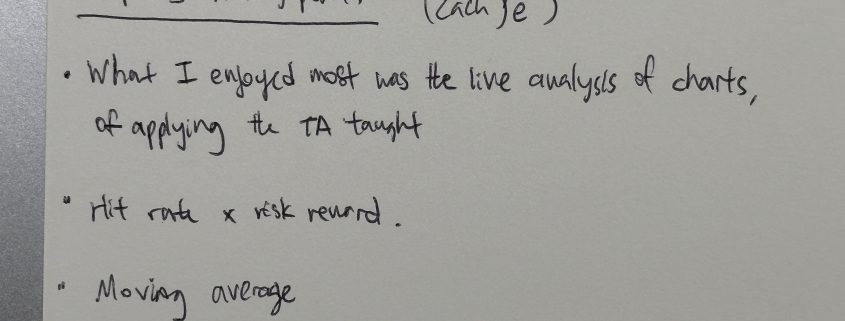 • What I enjoyed most was the live analysis of charts,
of applying the TA taught
• Hit rate x risk reward.
• Moving average